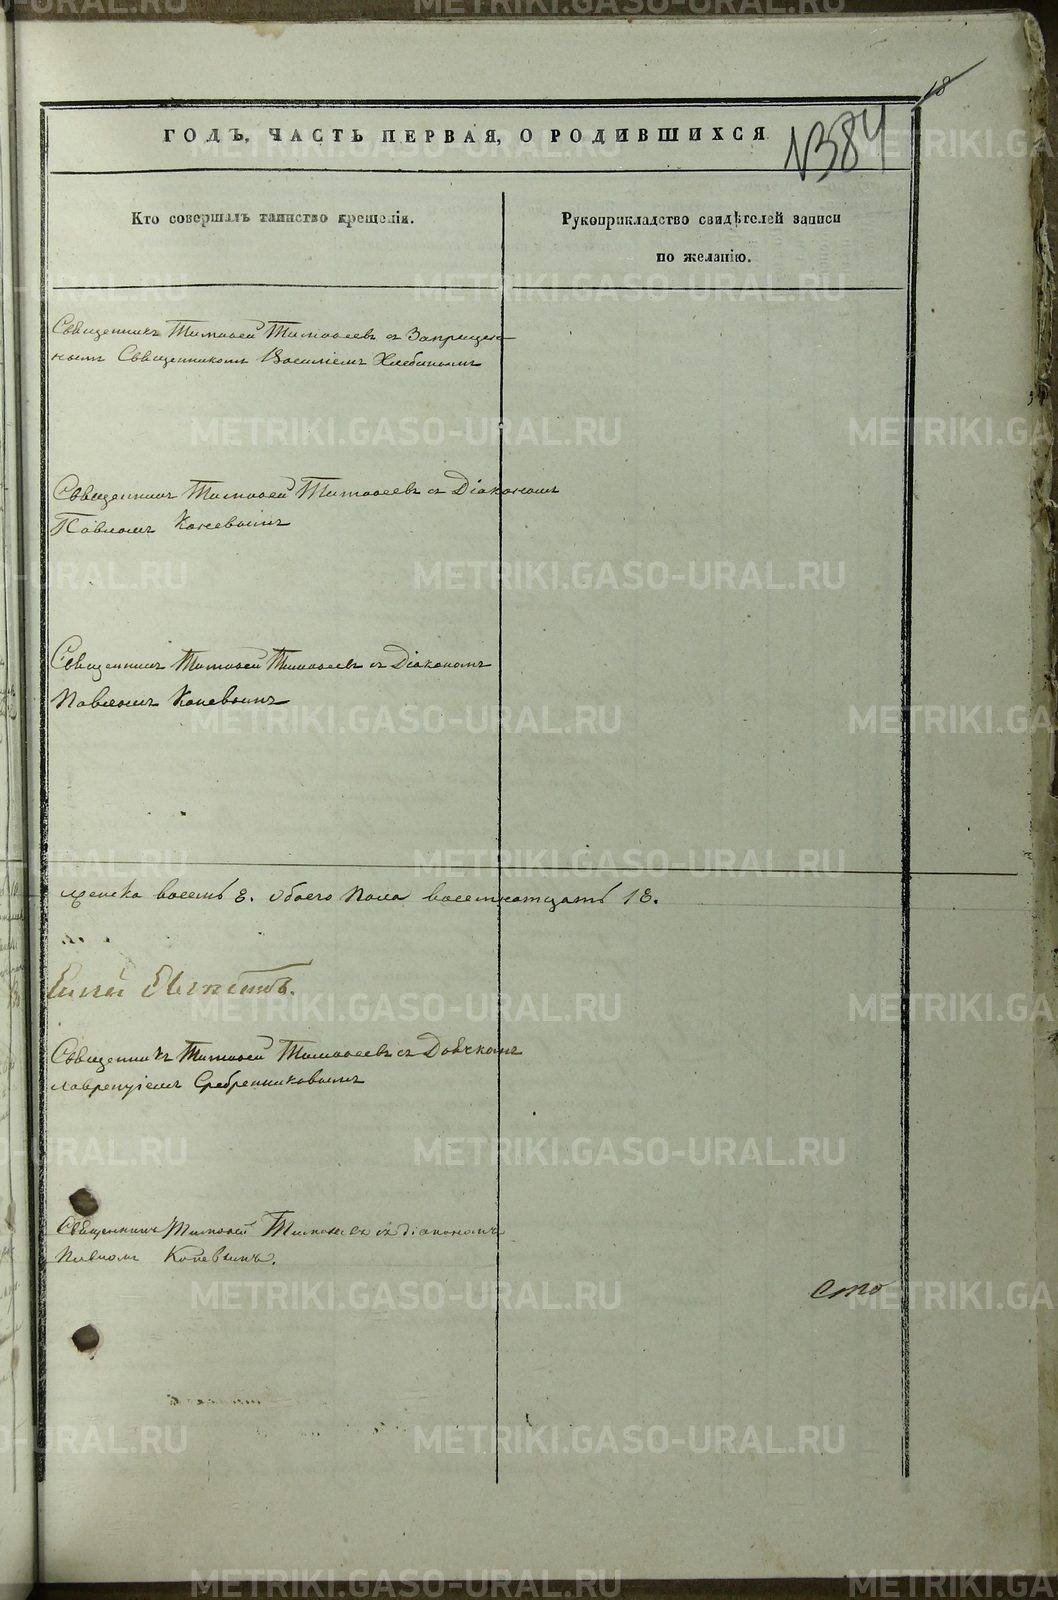 18
ГОДЪ, ЧАСТЬ ПЕРВАЯ, О РОДИВШИХСЯ
№384
Кто совершалъ таинство крещенія.
Рукоприкладство свидѣтелей записи
по желанію.
Священникъ Тимоѳей Тимоѳеевъ съ Запрещен-
нымъ Священникомъ Василіемъ Хлебинымъ
Священникъ Тимоѳей Тимоѳеевъ съ Діакономъ
Павломъ Коневымъ
Священникъ Тимоѳей Тимоѳеевъ съ Діакономъ
Павломъ Коневымъ
женска восемь 8. обоего пола восемнатцать 18.
Священникъ Тимоѳей Тимоѳеевъ съ Дьячкомъ
Лаврентіемъ Сребренниковымъ
Священникъ Тимоѳей Тимоѳеевъ съ діакономъ
Павломъ Коневымъ.
сто
METRIKI.GASO-URAL.RU